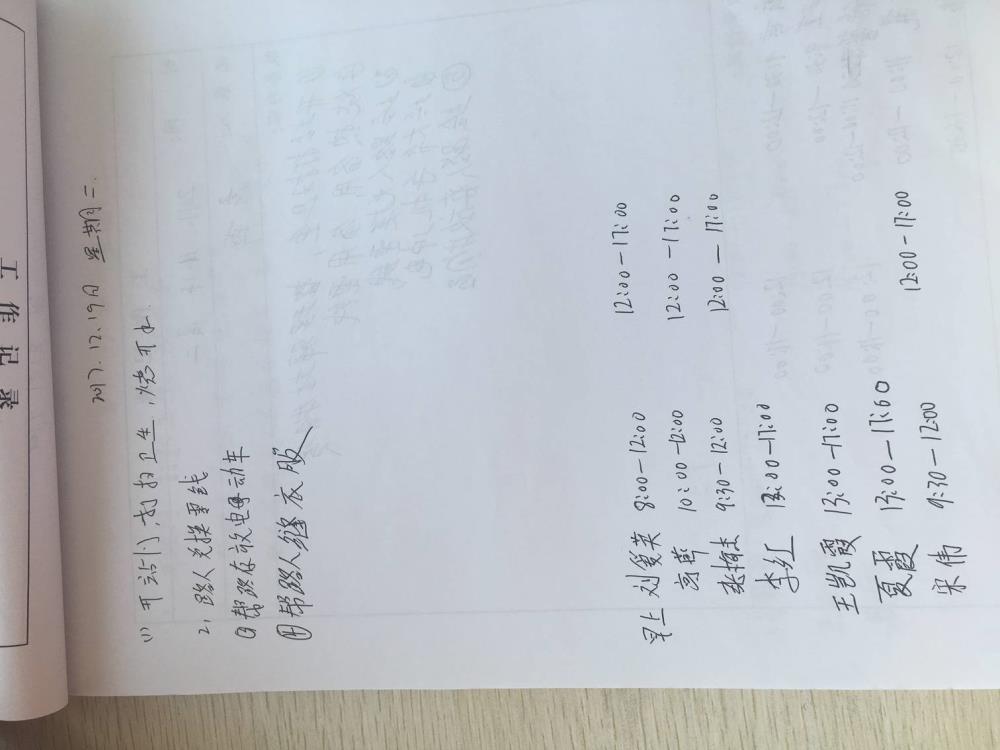 工作记录
2017.12.19日 星期二.
(1) 开站门,打扫卫生,烧开水.
2, 路人兑换零钱
③ 帮路人存放电动车
④ 帮路人缝衣服
早上 刘爱英 8:00-12:00 12:00-17:00
10:00-12:00 12:00-17:00
9:30-12:00 12:00-17:00
李红 13:00-17:00
王凯霞 13:00-17:00
夏霞 13:00-17:00
宋伟 9:30-12:00 12:00-17:00